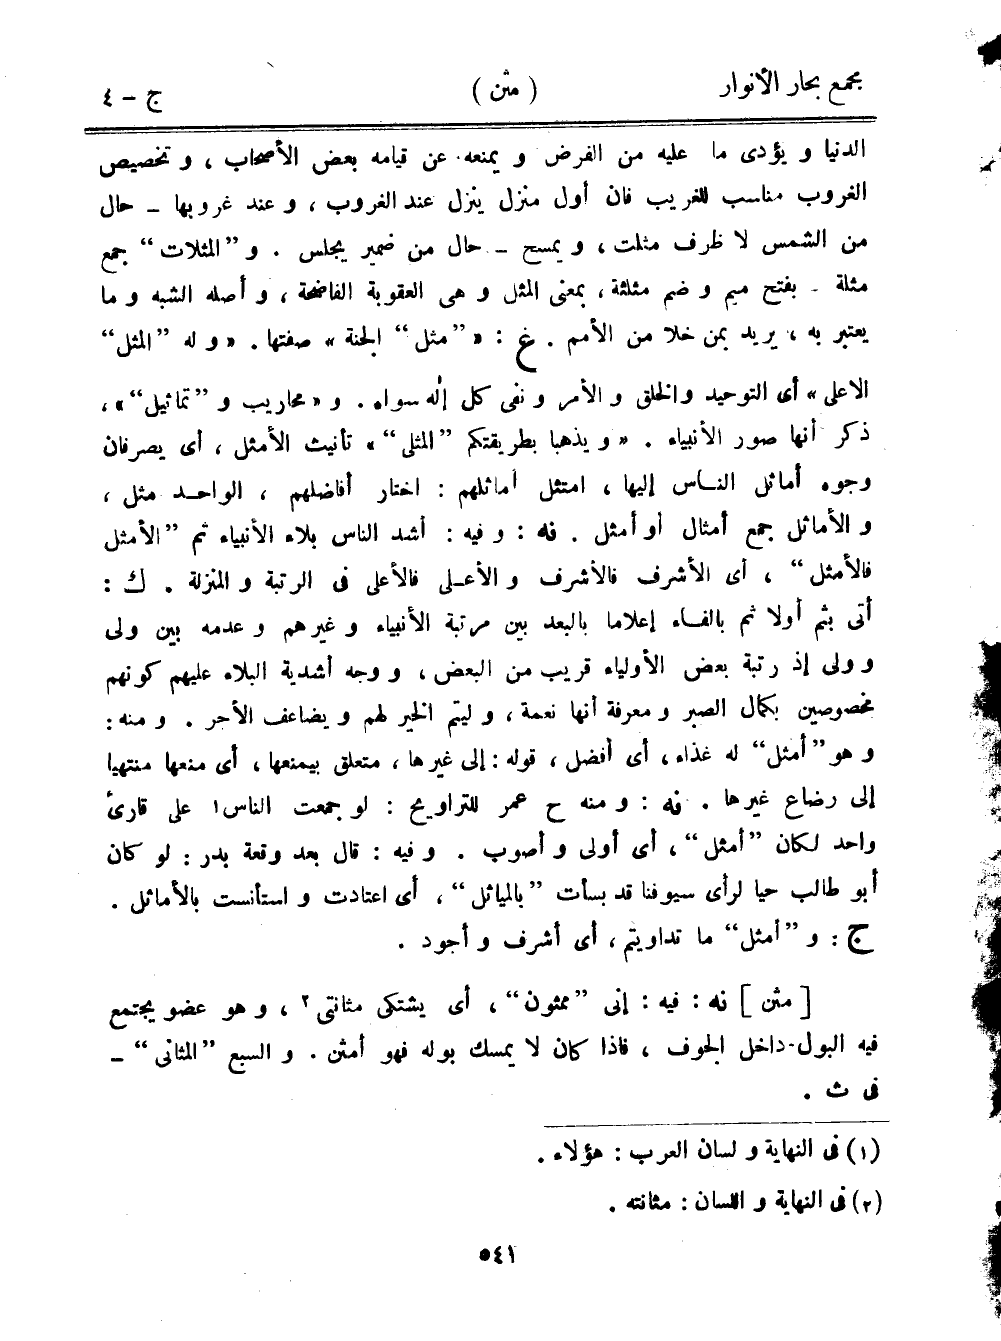 مجمع بحار الأنوار ( مثن ) ج – ٤
الدنيا و يؤدى ما عليه من الفرض و يمنعه عن قيامه بعض الأصحاب ، و تخصيص
الغروب مناسب للغريب فان أول منزل ينزل عند الغروب ، و عند غروبها – حال
من الشمس لا ظرف مثلت ، و يمسح – حال من ضمير يجلس . و ”المثلات“ جمع
مثلة – بفتح ميم و ضم مثلثة ، بمعنى المثل و هى العقوبة الفاضحة ، و أصله الشبه و ما
يعتبر به ، يريد بمن خلا من الأمم . غ : « ”مثل“ الجنة » صفتها . « و له ”المثل“
الاعلى » أى التوحيد والخلق و الأمر و نفى كل إله سواه . و « محاريب و ”تماثيل“ » ،
ذكر أنها صور الأنبياء . « و يذهبا بطريقتكم ”المثلى“ » تأنيث الأمثل ، أى يصرفان
وجوه أماثل النـاس إليها ، امتثل أماثلهم : اختار أفاضلهم ، الواحـد مثل ،
و الأماثل جمع أمثال أو أمثل . نه : و فيه : أشد الناس بلاء الأنبياء ثم ”الأمثل
فالأمثل“ ، أى الأشرف فالأشرف و الأعـلى فالأعلى فى الرتبة و المنزلة . ك :
أتى بثم أولا ثم بالفـاء إعلاما بالبعد بين مرتبة الأنبياء و غيرهم و عدمه بين ولى
و ولى إذ رتبة بعض الأولياء قريب من البعض ، و وجه أشدية البلاء عليهم كونهم
مخصوصين بكمال الصبر و معرفة أنها نعمة ، و ليتم الخير لهم و يضاعف الأجر . و منه :
و هو ”أمثل“ له غذاء ، أى أفضل ، قوله : إلى غيرها ، متعلق بيمنعها ، أى منعها منتهيا
إلى رضاع غيرها . نه : و منه ح عمر للتراويح : لو جمعت الناس١ على قارئ
واحد لكان ”أمثل“ ، أى أولى و أصوب . و فيه : قال بعد وقعة بدر : لو كان
أبو طالب حيا لرأى سيوفنا قد بسأت ”بالمياثل“ ، أى اعتادت و استأنست بالأماثل .
ج : و ”أمثل“ ما تداويتم ، أى أشرف و أجود .
[ مثن ] نه : فيه : إنى ”ممثون“ ، أى يشتكى مثانتى ٢ ، و هو عضو يجتمع
فيه البول داخل الجوف ، فاذا كان لا يمسك بوله فهو أمثن . و السبع ”المثانى“ –
فى ث .
(١) فى النهاية و لسان العرب : هؤلاء .
(٢) فى النهاية و اللسان : مثانته .
٥٤١